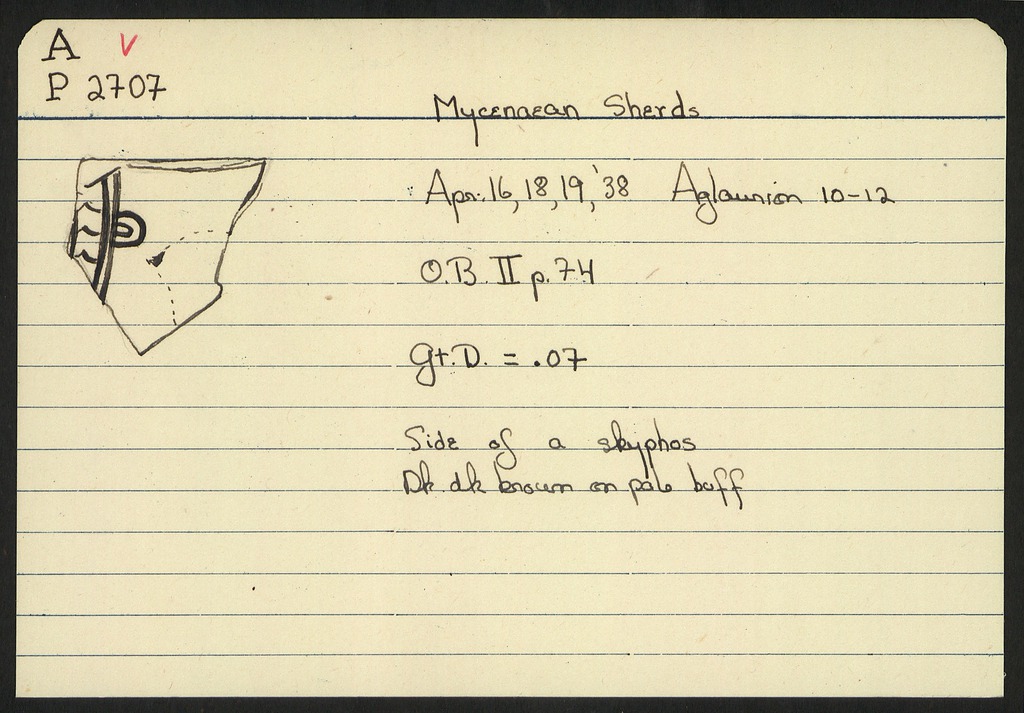 A V
P 2707
Mycenaean Sherds
Apr. 16, 18, 19, '38 Aglaurion 10-12
O.B. II p. 74
Gt. D. = .07
Side of a skyphos
Dk. dk brown on pale buff